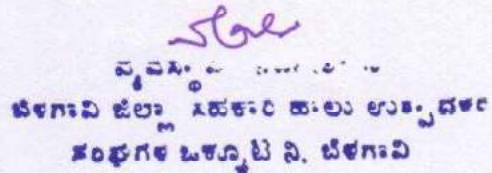 ಬೆಳಗಾವಿ ಜಿಲ್ಲಾ ಸಹಕಾರಿ ಹಾಲು ಉತ್ಪಾದಕರ
ಸಂಘಗಳ ಒಕ್ಕೂಟ ನಿ, ಬೆಳಗಾವಿ